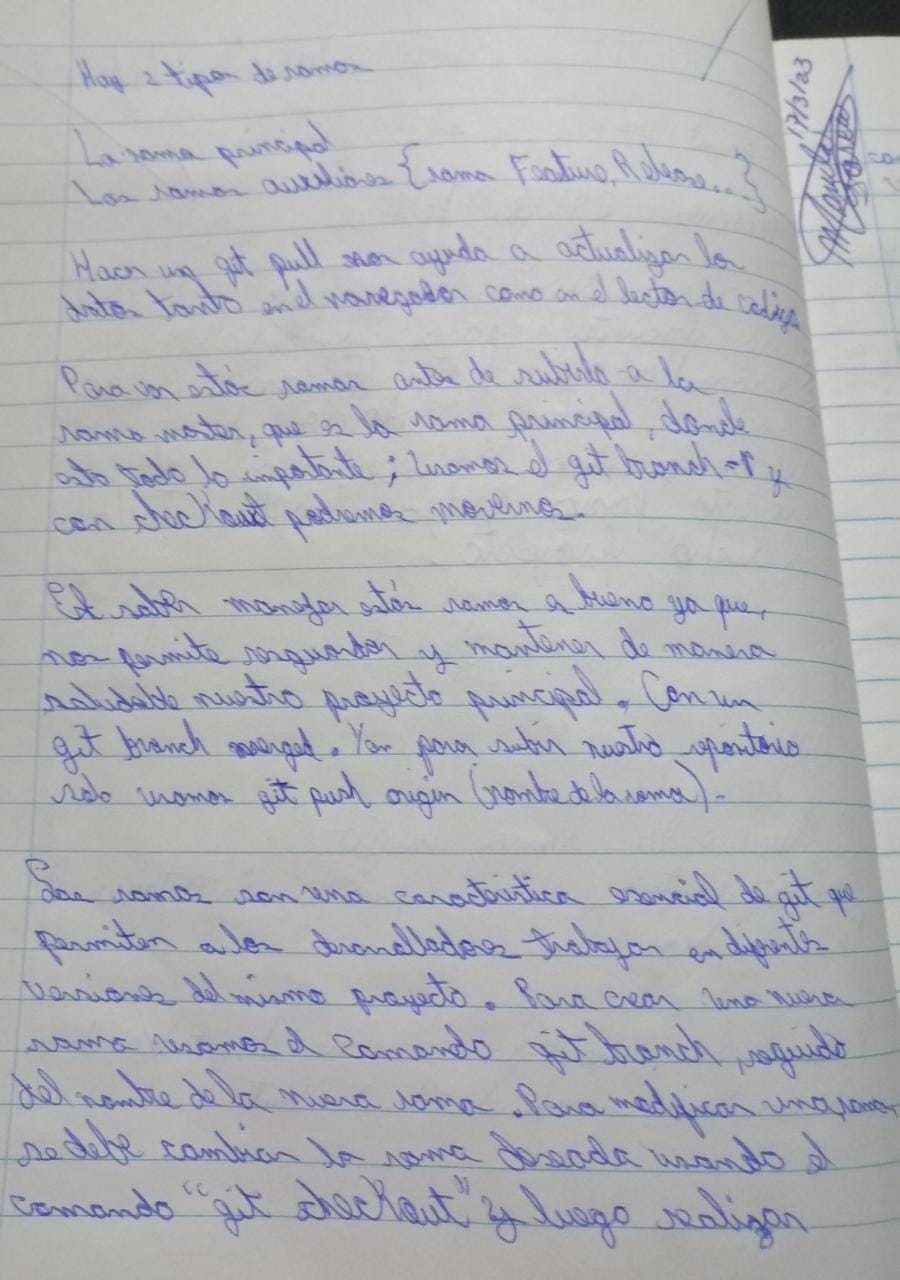 Hay 2 tipos de ramas
La rama principal
Las ramas auxiliares {rama Feature, Release...}
Hacer un git pull nos ayuda a actualizar los
datos tanto en el navegador como en el lector de codigo
Para ver estás ramas antes de subirlo a la
rama master, que es la rama principal, donde
esta todo lo importante; usamos el git branch -r y
con checkout podremos movernos.
El saber manejar estás ramas es bueno ya que,
nos permite resguardar y mantener de manera
saludable nuestro proyecto principal. Con un
git branch merged. Y para subir nuestro repositorio
solo usamos git push origin (nombre de la rama).
Las ramas son una característica esencial de git que
permiten a los desarrolladores trabajar en diferentes
versiones del mismo proyecto. Para crear una nueva
rama usamos el comando git branch, seguido
del nombre de la nueva rama. Para modificar una rama
se debe cambiar la rama deseada usando el
comando "git checkout" y luego realizar
17/3/23